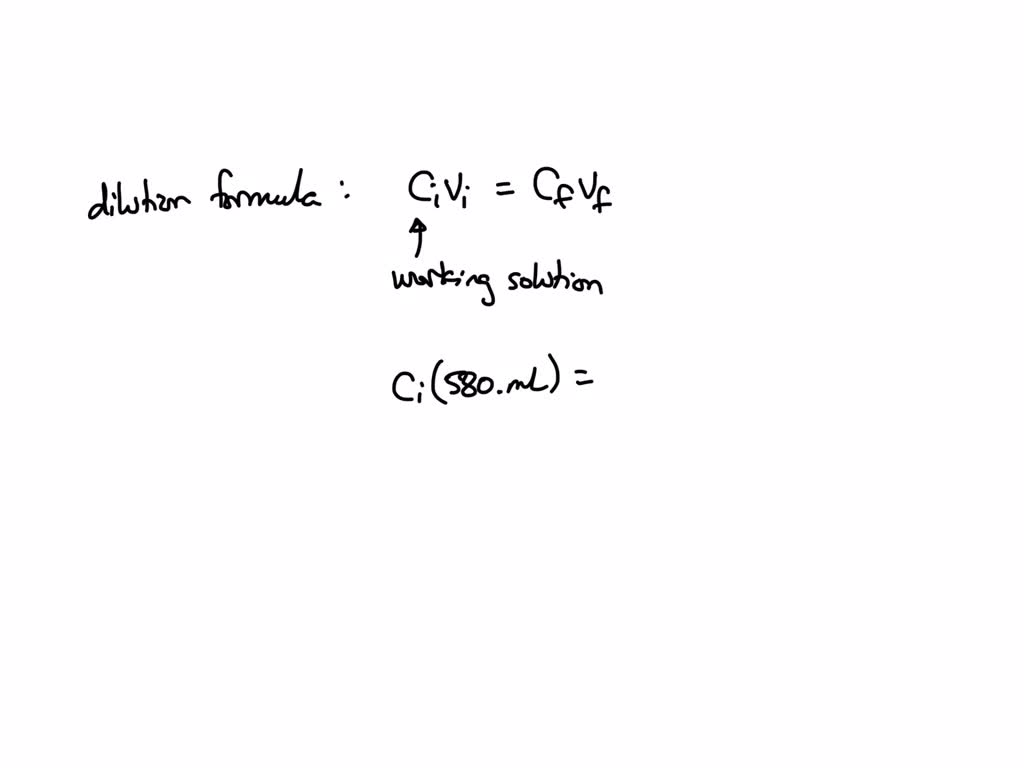 dilution formula : CᵢVᵢ = C_f V_f
↑
working solution
Cᵢ(580.mL) =